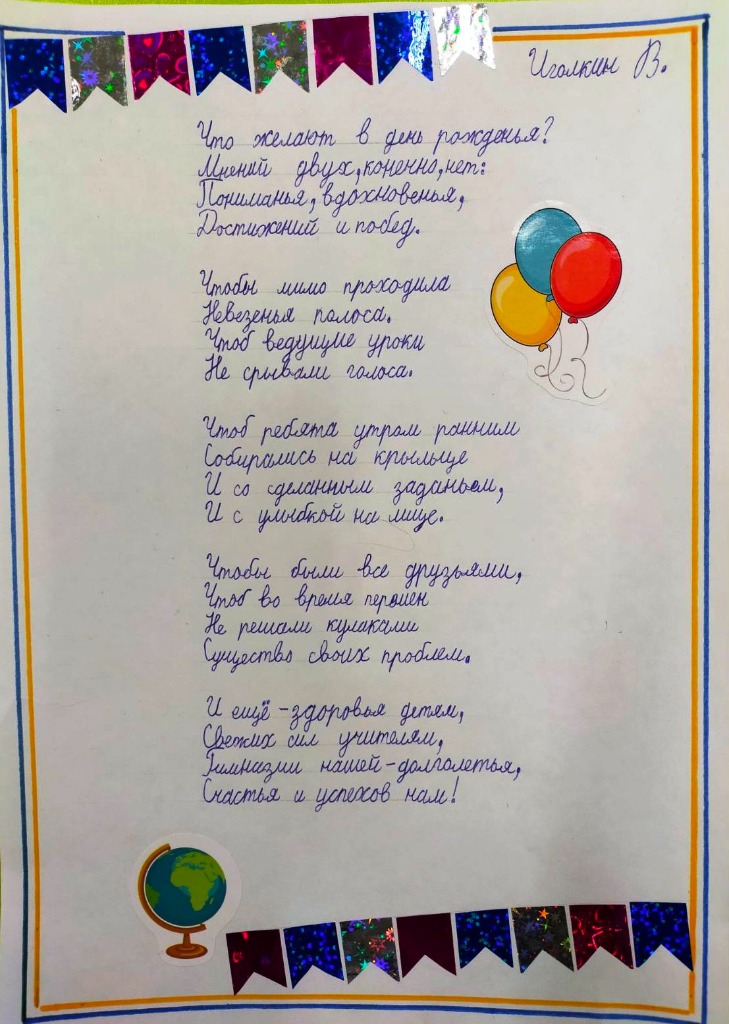 Иголкин В.
Что желают в день рожденья?
Мнений двух, конечно, нет:
Пониманья, вдохновенья,
Достижений и побед.
Чтобы мимо проходила
Невезенья полоса.
Чтоб ведущие уроки
Не срывали голоса.
Чтоб ребята утром ранним
Собирались на крыльце
И со сделанным заданьем,
И с улыбкой на лице.
Чтобы были все друзьями,
Чтоб во время перемен
Не решали кулаками
Существо своих проблем.
И ещё - здоровья детям,
Свежих сил учителям,
Гимназии нашей - долголетья,
Счастья и успехов нам!